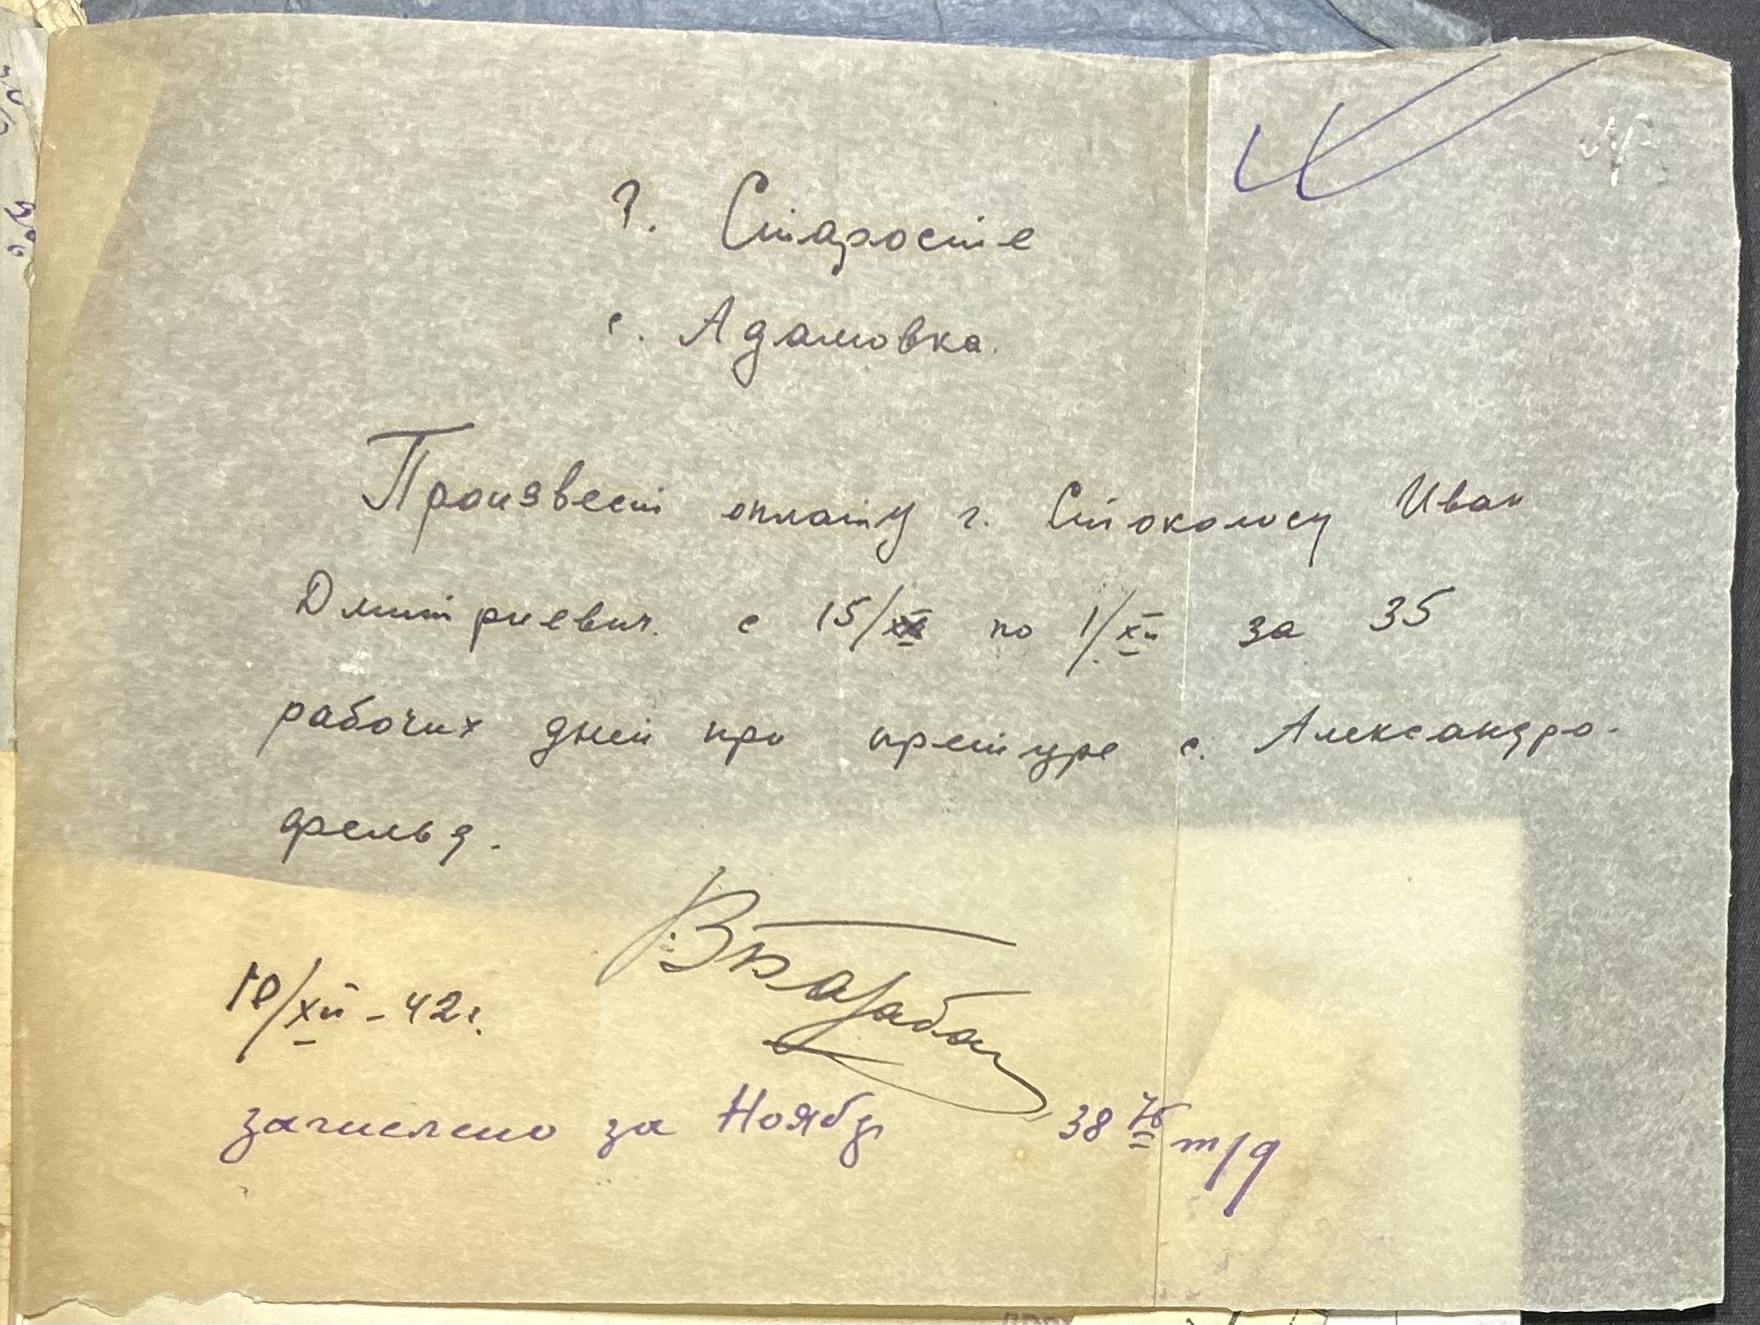 г. Старосте
с. Адамовка.
Произвест оплату г. Стоколосу Иван
Дмитриевич. с 15/ по 1/XII за 35
рабочих дней при претуре с. Александро-
фельд.
10/XII - 42 г.
зачислено за Ноябр 38 75 т/д